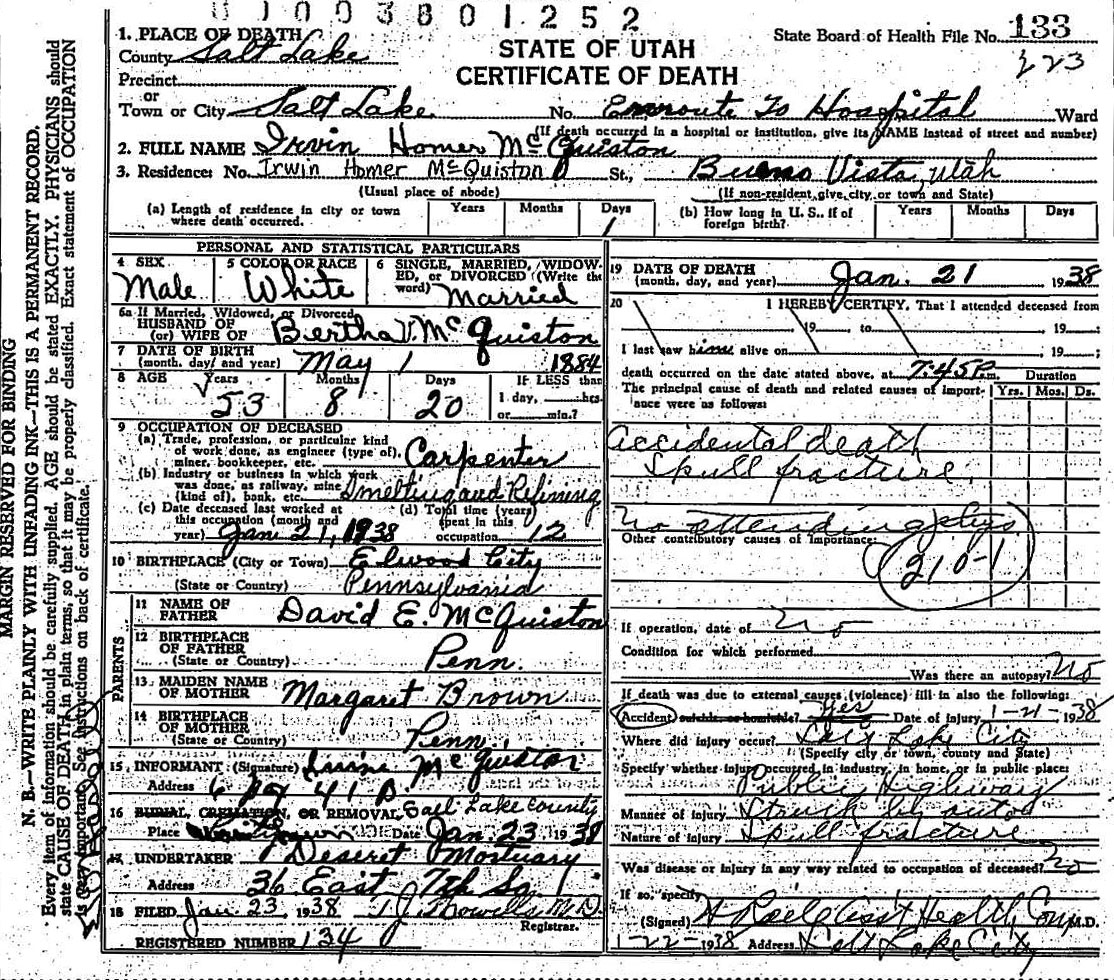 01003801252
1. PLACE OF DEATH
County Salt Lake
STATE OF UTAH
CERTIFICATE OF DEATH
State Board of Health File No. 133
223
Precinct
or
Town or City Salt Lake No. Enroute To Hospital Ward
(If death occurred in a hospital or institution, give its NAME instead of street and number)
2. FULL NAME Irvin Homer McQuiston
3. Residence: No. Irwin Homer McQuiston St., Buena Vista, Utah
(Usual place of abode) (If non-resident, give city or town and State)
(a) Length of residence in city or town where death occurred. Years Months Days 1
(b) How long in U. S., if of foreign birth? Years Months Days
PERSONAL AND STATISTICAL PARTICULARS
4 SEX Male
5 COLOR OR RACE White
6 SINGLE, MARRIED, WIDOWED, or DIVORCED (Write the word) Married
6a If Married, Widowed, or Divorced
HUSBAND OF
(or) WIFE OF Bertha V. McQuiston
7 DATE OF BIRTH
(month, day, and year) May 1 1884
8 AGE Years 53 Months 8 Days 20
IF LESS than
1 day, hrs.
or min.?
9 OCCUPATION OF DECEASED
(a) Trade, profession, or particular kind of work done, as engineer (type of), miner, bookkeeper, etc. Carpenter
(b) Industry or business in which work was done, as railway, mine (kind of), bank, etc. Smelting and Refining
(c) Date deceased last worked at this occupation (month and year) Jan 21, 1938
(d) Total time (years) spent in this occupation 12
10 BIRTHPLACE (City or Town) Elwood City
(State or Country) Pennsylvania
PARENTS
11 NAME OF FATHER David E. McQuiston
12 BIRTHPLACE OF FATHER
(State or Country) Penn.
13 MAIDEN NAME OF MOTHER Margaret Brown
14 BIRTHPLACE OF MOTHER
(State or Country) Penn.
15 INFORMANT (Signature) McQuiston
Address
16 BURIAL, CREMATION, OR REMOVAL, Salt Lake County
Place Date Jan 23 1938
17 UNDERTAKER Deseret Mortuary
Address 36 East 7th So
18 FILED Jan 23, 1938 T. J. Howells M.D.
Registrar.
REGISTERED NUMBER 134
19 DATE OF DEATH
(month, day, and year) Jan. 21 1938
20 I HEREBY CERTIFY, That I attended deceased from
19 to 19
I last saw him alive on 19
death occurred on the date stated above, at 7:45 P.m. Duration
The principal cause of death and related causes of importance were as follows: Yrs. Mos. Ds.
Accidental death
Skull fracture.
No attending phys.
Other contributory causes of importance:
210-1
If operation, date of No
Condition for which performed
Was there an autopsy? No
If death was due to external causes (violence) fill in also the following:
Accident suicide or homicide? Yes Date of injury 1-21-1938
Where did injury occur? Salt Lake City
(Specify city or town, county and State)
Specify whether injury occurred in industry, in home, or in public place:
Public Highway
Manner of injury Struck by auto
Nature of injury Skull fracture
Was disease or injury in any way related to occupation of deceased? No
If so, specify
(Signed) Asst Health Com M.D.
1-22-1938 Address Salt Lake City
MARGIN RESERVED FOR BINDING
N. B.—WRITE PLAINLY WITH UNFADING INK—THIS IS A PERMANENT RECORD.
Every item of information should be carefully supplied. AGE should be stated EXACTLY. PHYSICIANS should
state CAUSE OF DEATH in plain terms, so that it may be properly classified. Exact statement of OCCUPATION
is very important. See instructions on back of certificate.